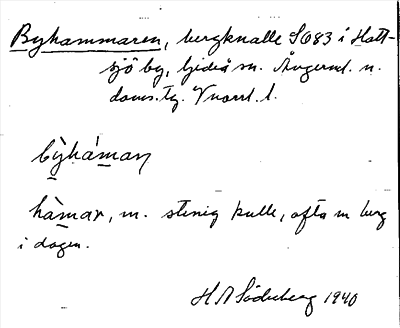 Byhammaren, bergknalle S 683 i Hatt-
sjö by, Ljusdals sn. Ångerml. n.
doms. tg. Vnorrl. l.
bỳhámar
hàmar, m. stenig kulle, ofta m berg
i dagen.
H A Söderberg 1940